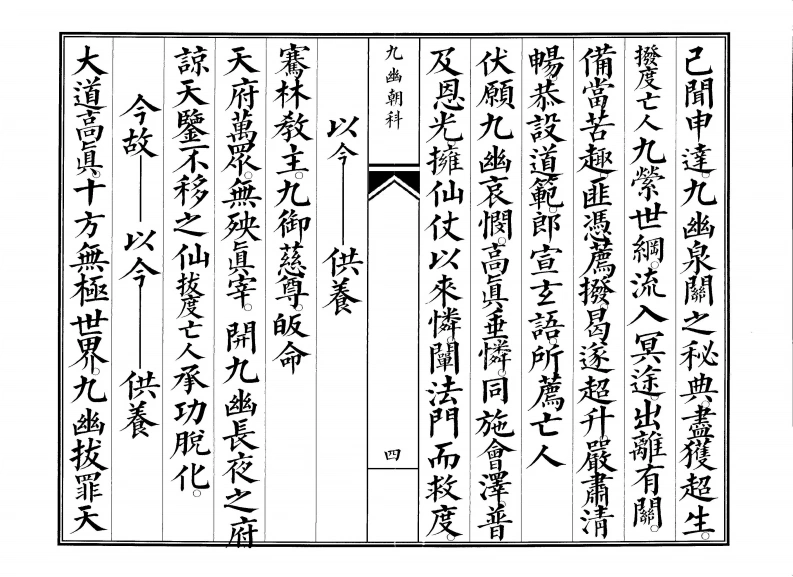 己聞申達。九幽泉關之秘典。盡獲超生。
撥度亡人九縈世綱。流入冥途。出離有關。
備當苦趣匪憑薦撥曷遂超升。嚴肅清
暢恭設道範。郎宣玄語。所薦亡人
伏願九幽哀憫。高眞垂憐。同施會澤普
及恩光擁仙仗以來憐。闡法門而救度。
以今——供養
九幽朝科
四
騫林教主。九御慈尊。皈命
天府萬眾。無殃眞宰。開九幽長夜之府
諒天鑒不移之仙拔度亡人承功脫化。
今故——以今——供養
大道高眞。十方無極世界。九幽拔罪天